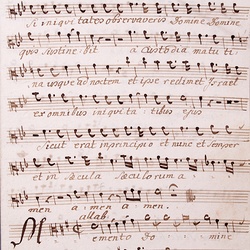 Si iniqui tates observaveris Domine Domine
quis sustine bit a Custodia matu ti
na usque ad noctem et ipse redimet Israel
ex omnibus iniquita tibus ejus
Sicut erat in principio et nunc et semper
et in sæcula sæculorum a
men a men a men.
Allab:
Memento Do mine